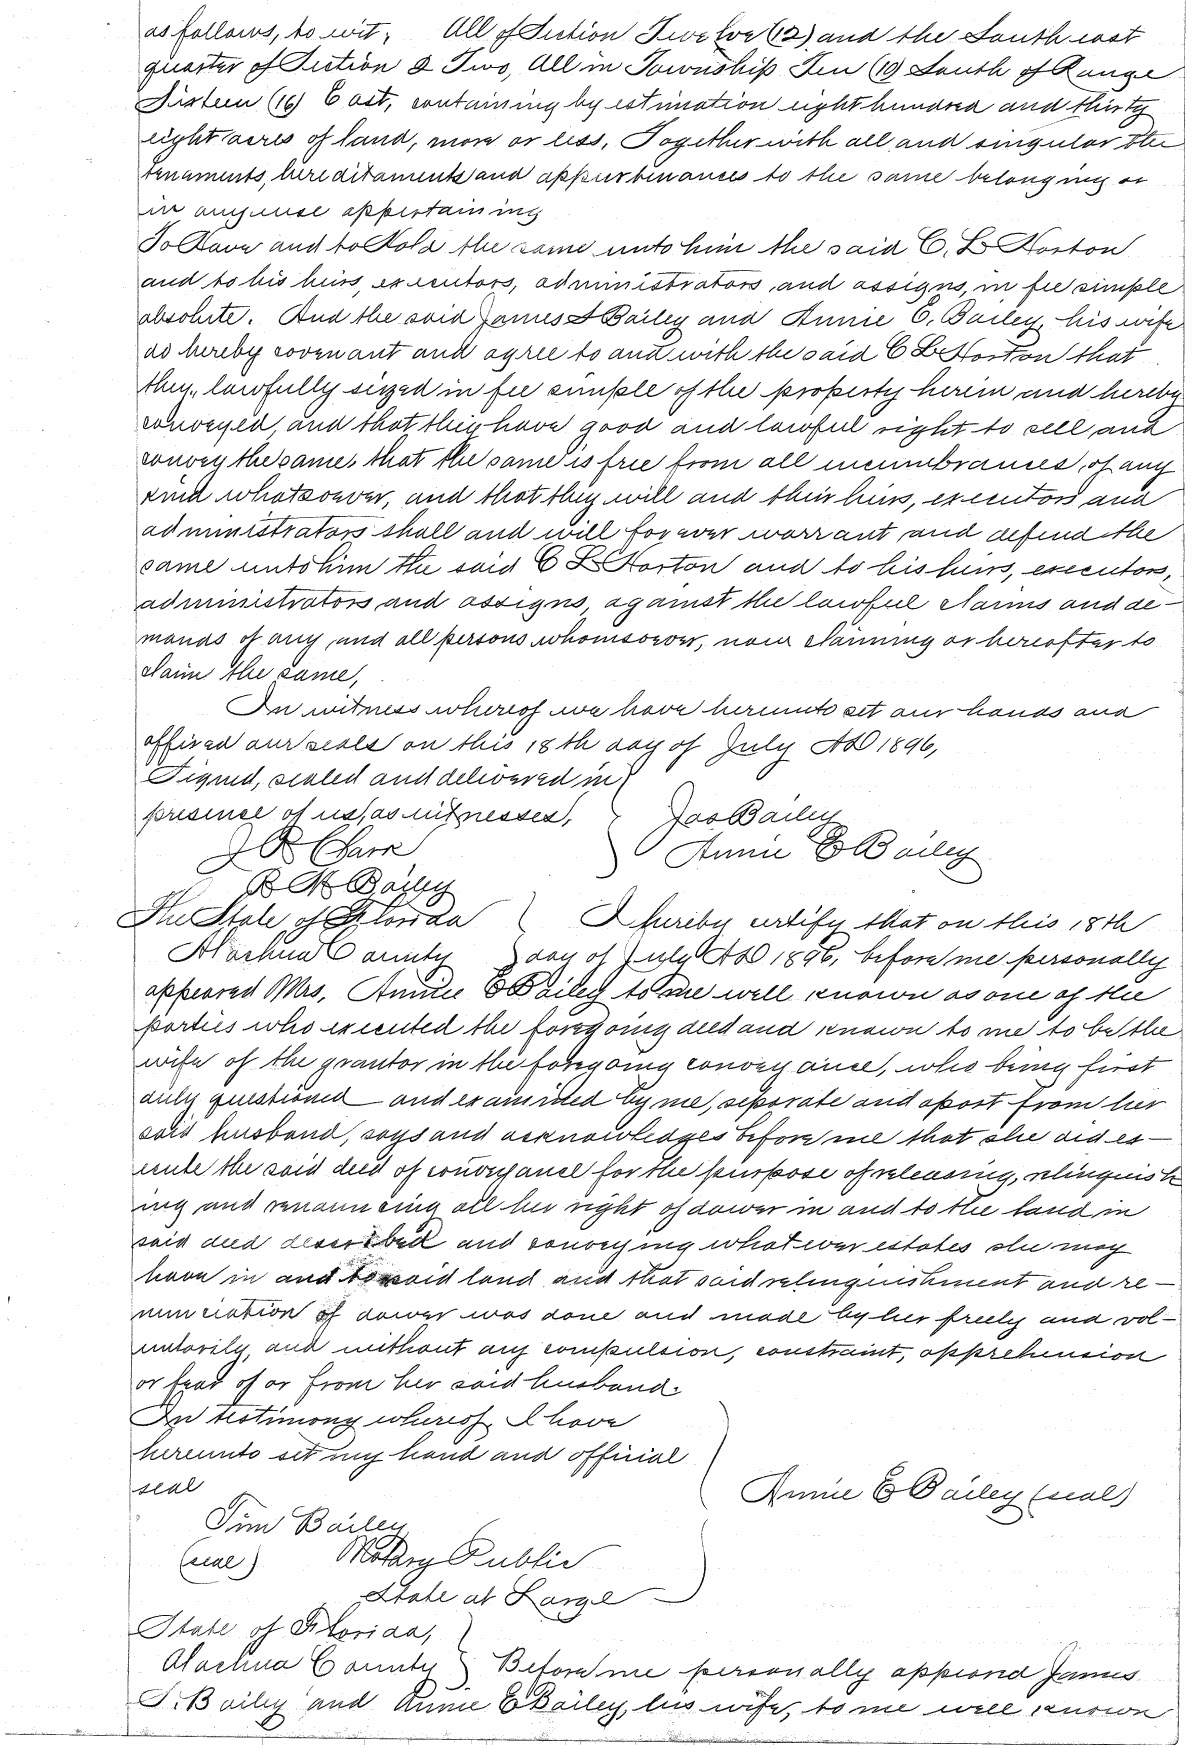 as follows, to wit; All of Section Twelve (12) and the South east
quarter of Section 2 Two, All in Township Ten (10) South of Range
Sixteen (16) East, containing by estimation eight hundred and thirty
eight acres of land, more or less, Together with all and singular the
tenaments, hereditaments and appurtenances to the same belonging or
in anywise appertaining
To Have and to Hold the same unto him the said C. L. Horton
and to his heirs, executors, administrators and assigns, in fee simple
absolute. And the said James S Bailey and Annie E. Bailey, his wife
do hereby covenant and agree to and with the said C L Horton that
they, lawfully sized in fee simple of the property herein and hereby
conveyed, and that they have good and lawful right to sell and
convey the same, that the same is free from all incumbrances of any
kind whatsoever, and that they will and their heirs, executors and
administrators shall and will forever warrant and defend the
same unto him the said C L Horton and to his heirs, executors,
administrators and assigns, against the lawful claims and de-
mands of any and all persons whomsoever, now claiming or hereafter to
claim the same,
In witness whereof we have hereunto set our hands and
affixed our seals on this 18th day of July AD 1896,
Signed, sealed and delivered in
presence of us, as witnesses, Jas Bailey
J R Clark Annie E Bailey
B H Bailey
The State of Florida I hereby certify that on this 18th
Alachua County day of July AD 1896, before me personally
appeared Mrs. Annie E Bailey to me well known as one of the
parties who executed the foregoing deed and known to me to be the
wife of the grantor in the foregoing conveyance, who being first
duly questioned and examined by me, separate and apart from her
said husband, says and acknowledges before me that she did ex-
ecute the said deed of conveyance for the purpose of releasing, relinquish
ing and renouncing all her right of dower in and to the land in
said deed described and conveying whatever estates she may
have in and to said land and that said relinquishment and re-
nunciation of dower was done and made by her freely and vol-
untarily, and without any compulsion, constraint, apprehension
or fear of or from her said husband.
In testimony whereof, I have
hereunto set my hand and official
seal Annie E Bailey (seal)
Tim Bailey
(seal) Notary Public
State at Large
State of Florida,
Alachua County Before me personally appeared James
S. Bailey and Annie E Bailey, his wife, to me well known